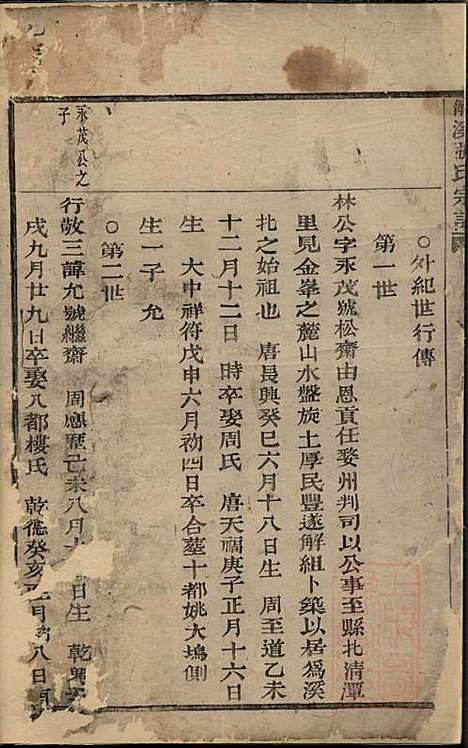 溪張氏宗譜
○外紀世行傳
第一世
林公字永茂號松齋由恩貢任婺州判司以公事至縣北清潭
里見金峯之麓山水盤旋土厚民豐遂解組卜築以居爲溪
北之始祖也　唐長興癸巳六月十八日生　周至道乙未
十二月十二日　時卒娶周氏　唐天福庚子正月十六日
生　大中祥符戊申六月初四日卒合塟十都姚大塢側
生一子　允
○第二世
永茂公之子
行敬三諱允號繼齋　周應歷己未八月十日生　乾興
戌九月廿九日卒娶八都樓氏　乾德癸亥月初八日